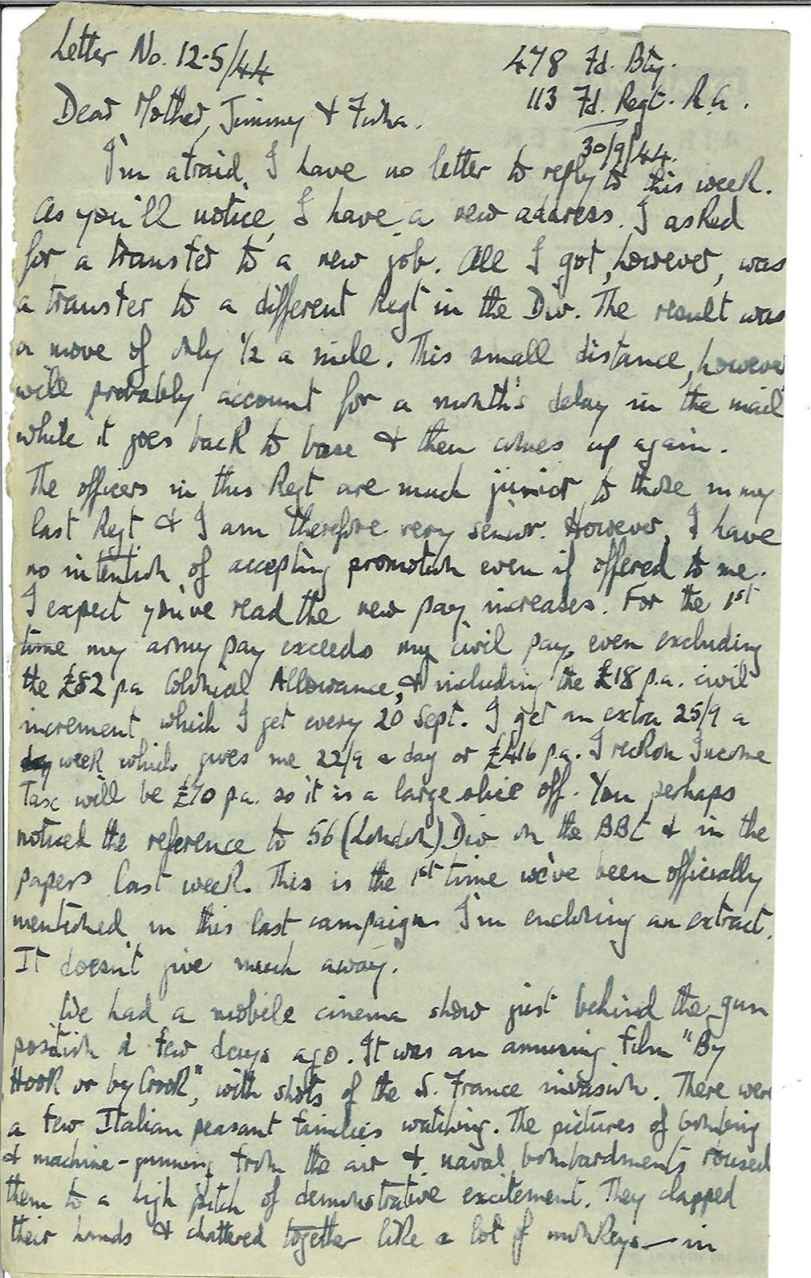 Letter No. 12-5/44
478 Fd. Bty.
113 Fd. Regt. R.A.
30/9/44.
Dear Mother, Jimmy &
I'm afraid, I have no letter to reply to this week.
As you'll notice, I have a new address. I asked
for a transfer to a new job. All I got, however, was
a transfer to a different Regt in the Div. The result was
a move of only ½ a mile. This small distance, however
will probably account for a month's delay in the mail
while it goes back to base & then comes up again.
The officers in this Regt are much junior to those in my
last Regt & I am therefore very senior. However, I have
no intention of accepting promotion even if offered to me.
I expect you've read the new pay increases. For the 1st
time my army pay exceeds my civil pay, even excluding
the £82 p.a Colonial Allowance, & including the £18 p.a. civil
increment which I get every 20 Sept. I get an extra 25/9 a
week which gives me 22/9 a day or £416 p.a. I reckon Income
Tax will be £70 p.a. so it is a large slice off. You perhaps
noticed the reference to 56 (London) Div on the BBC & in the
papers last week. This is the 1st time we've been officially
mentioned in this last campaign. I'm enclosing an extract.
It doesn't give much away.
We had a mobile cinema show just behind the gun
position a few days ago. It was an amusing film "By
Hook or by Crook", with shots of the S. France invasion. There were
a few Italian peasant families watching. The pictures of bombing
& machine-gunning from the air & naval bombardments roused
them to a high pitch of demonstrative excitement. They clapped
their hands & chattered together like a lot of monkeys - in